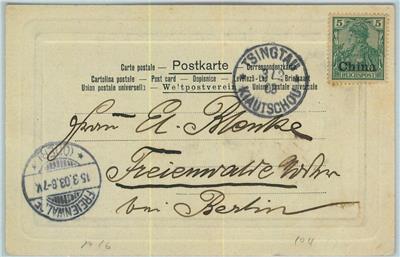 Carte postale — Postkarte — Correspondenzkarte
Cartolina postale — Post card — Dopisnice — Levelező-Lap — Briefkaart
Union postale universelle — Weltpostverein — Unione postale universale
TSINGTAU
KIAUTSCHOU
5 5
China
REICHSPOST
Herrn A. Blenke
Freienwalde
bei Berlin
FREIENWALDE
15.3.03.6-7N.
(ODER)